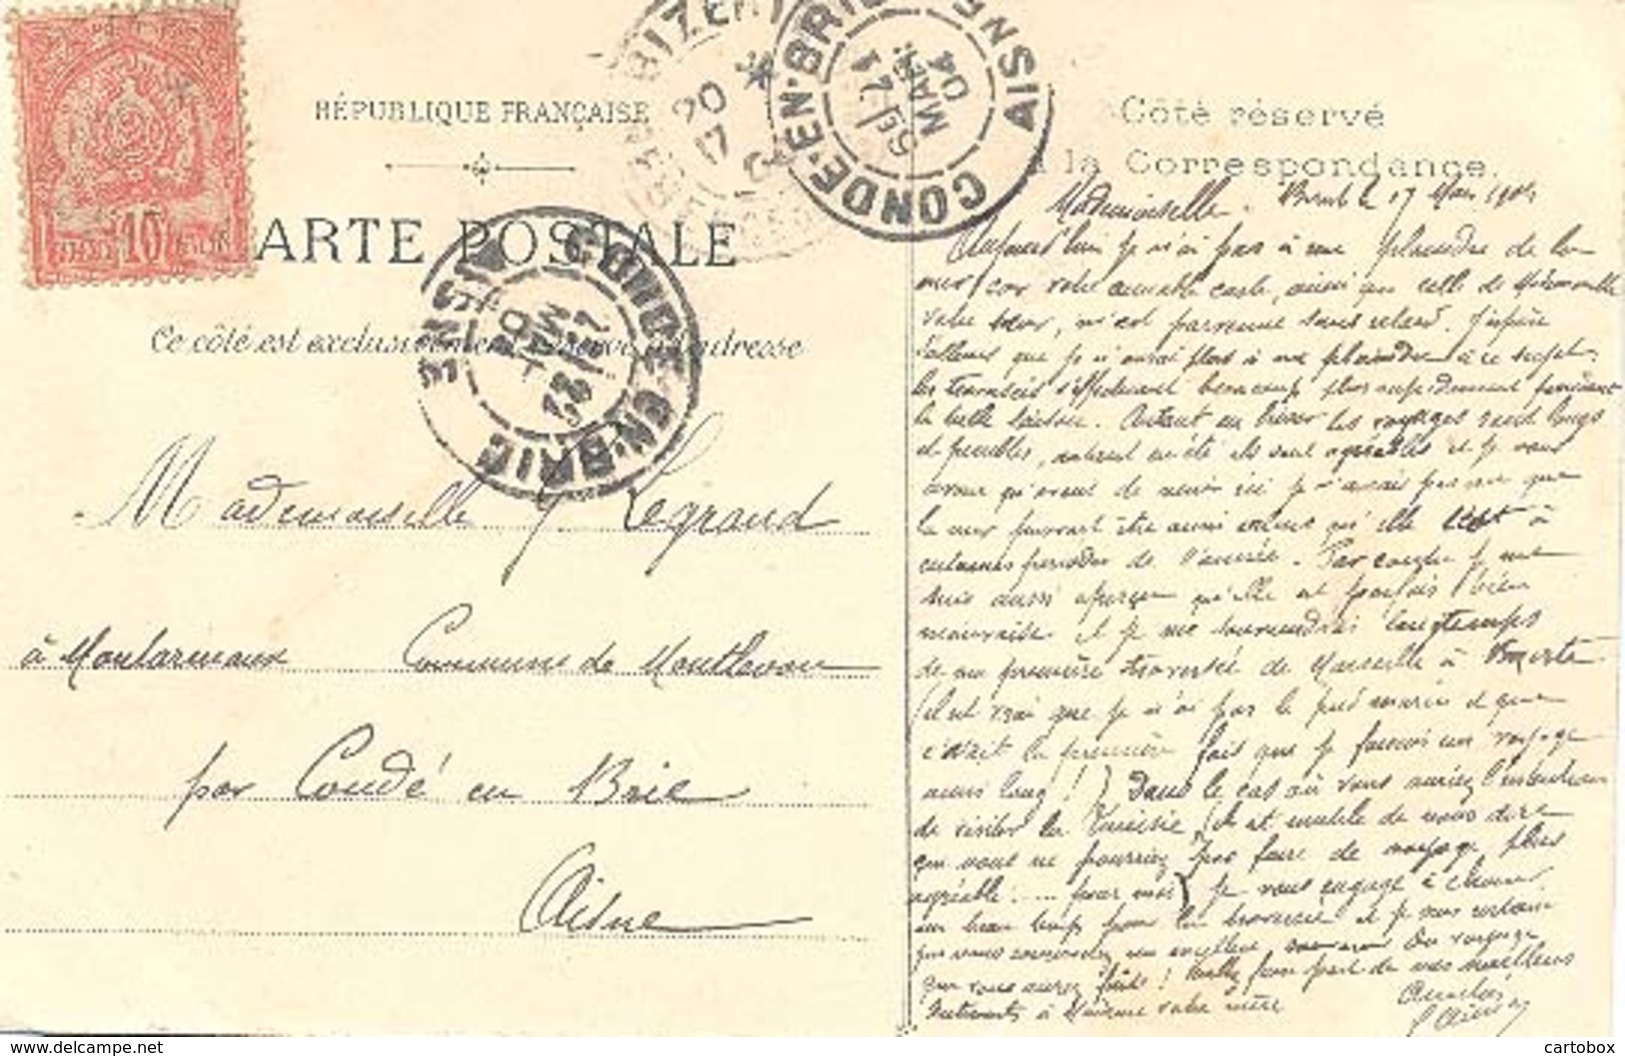 RÉPUBLIQUE FRANÇAISE
CARTE POSTALE
Ce côté est exclusivement réservé à l'adresse
Côté réservé
à la Correspondance.
10
BIZERTE
CONDE-EN-BRIE AISNE
MARS
04
CONDE-EN-BRIE AISNE
Mademoiselle Legrand
à Montarmaux Commune de Montlevon
par Condé en Brie
Aisne
Mademoiselle. 17 Mars 1904
Aujourd'hui je n'ai pas à me plaindre de la
mer, car votre aimable carte, ainsi que celle de Mademoiselle
votre sœur, m'est parvenue sans retard. J'espère
d'ailleurs que je n'aurai plus à me plaindre à ce sujet:
les traversées s'effectuant beaucoup plus rapidement pendant
la belle saison. Autant en hiver les voyages sont longs
et pénibles, autant en été ils sont agréables et je vous
avoue qu'avant de venir ici je n'aurais pas cru que
la mer pouvait être aussi qu'elle l'est à
certaines périodes de l'année. Par contre je me
suis aussi aperçu qu'elle est parfois bien
mauvaise et je me souviendrai longtemps
de ma première traversée de Marseille à Bizerte
(il est vrai que je n'ai pas le pied marin et que
c'était la première fois que je faisais un voyage
aussi long!) Dans le cas où vous auriez l'intention
de visiter la Tunisie, (il est inutile de vous dire
que vous ne pourriez pas faire de voyage plus
agréable .... pour moi) je vous engage à choisir
un beau temps pour la traversée et je suis certain
que vous conserverez un excellent souvenir du voyage
que vous aurez fait! Veuillez faire part de mes meilleurs
sentiments à Madame votre mère
cartobox